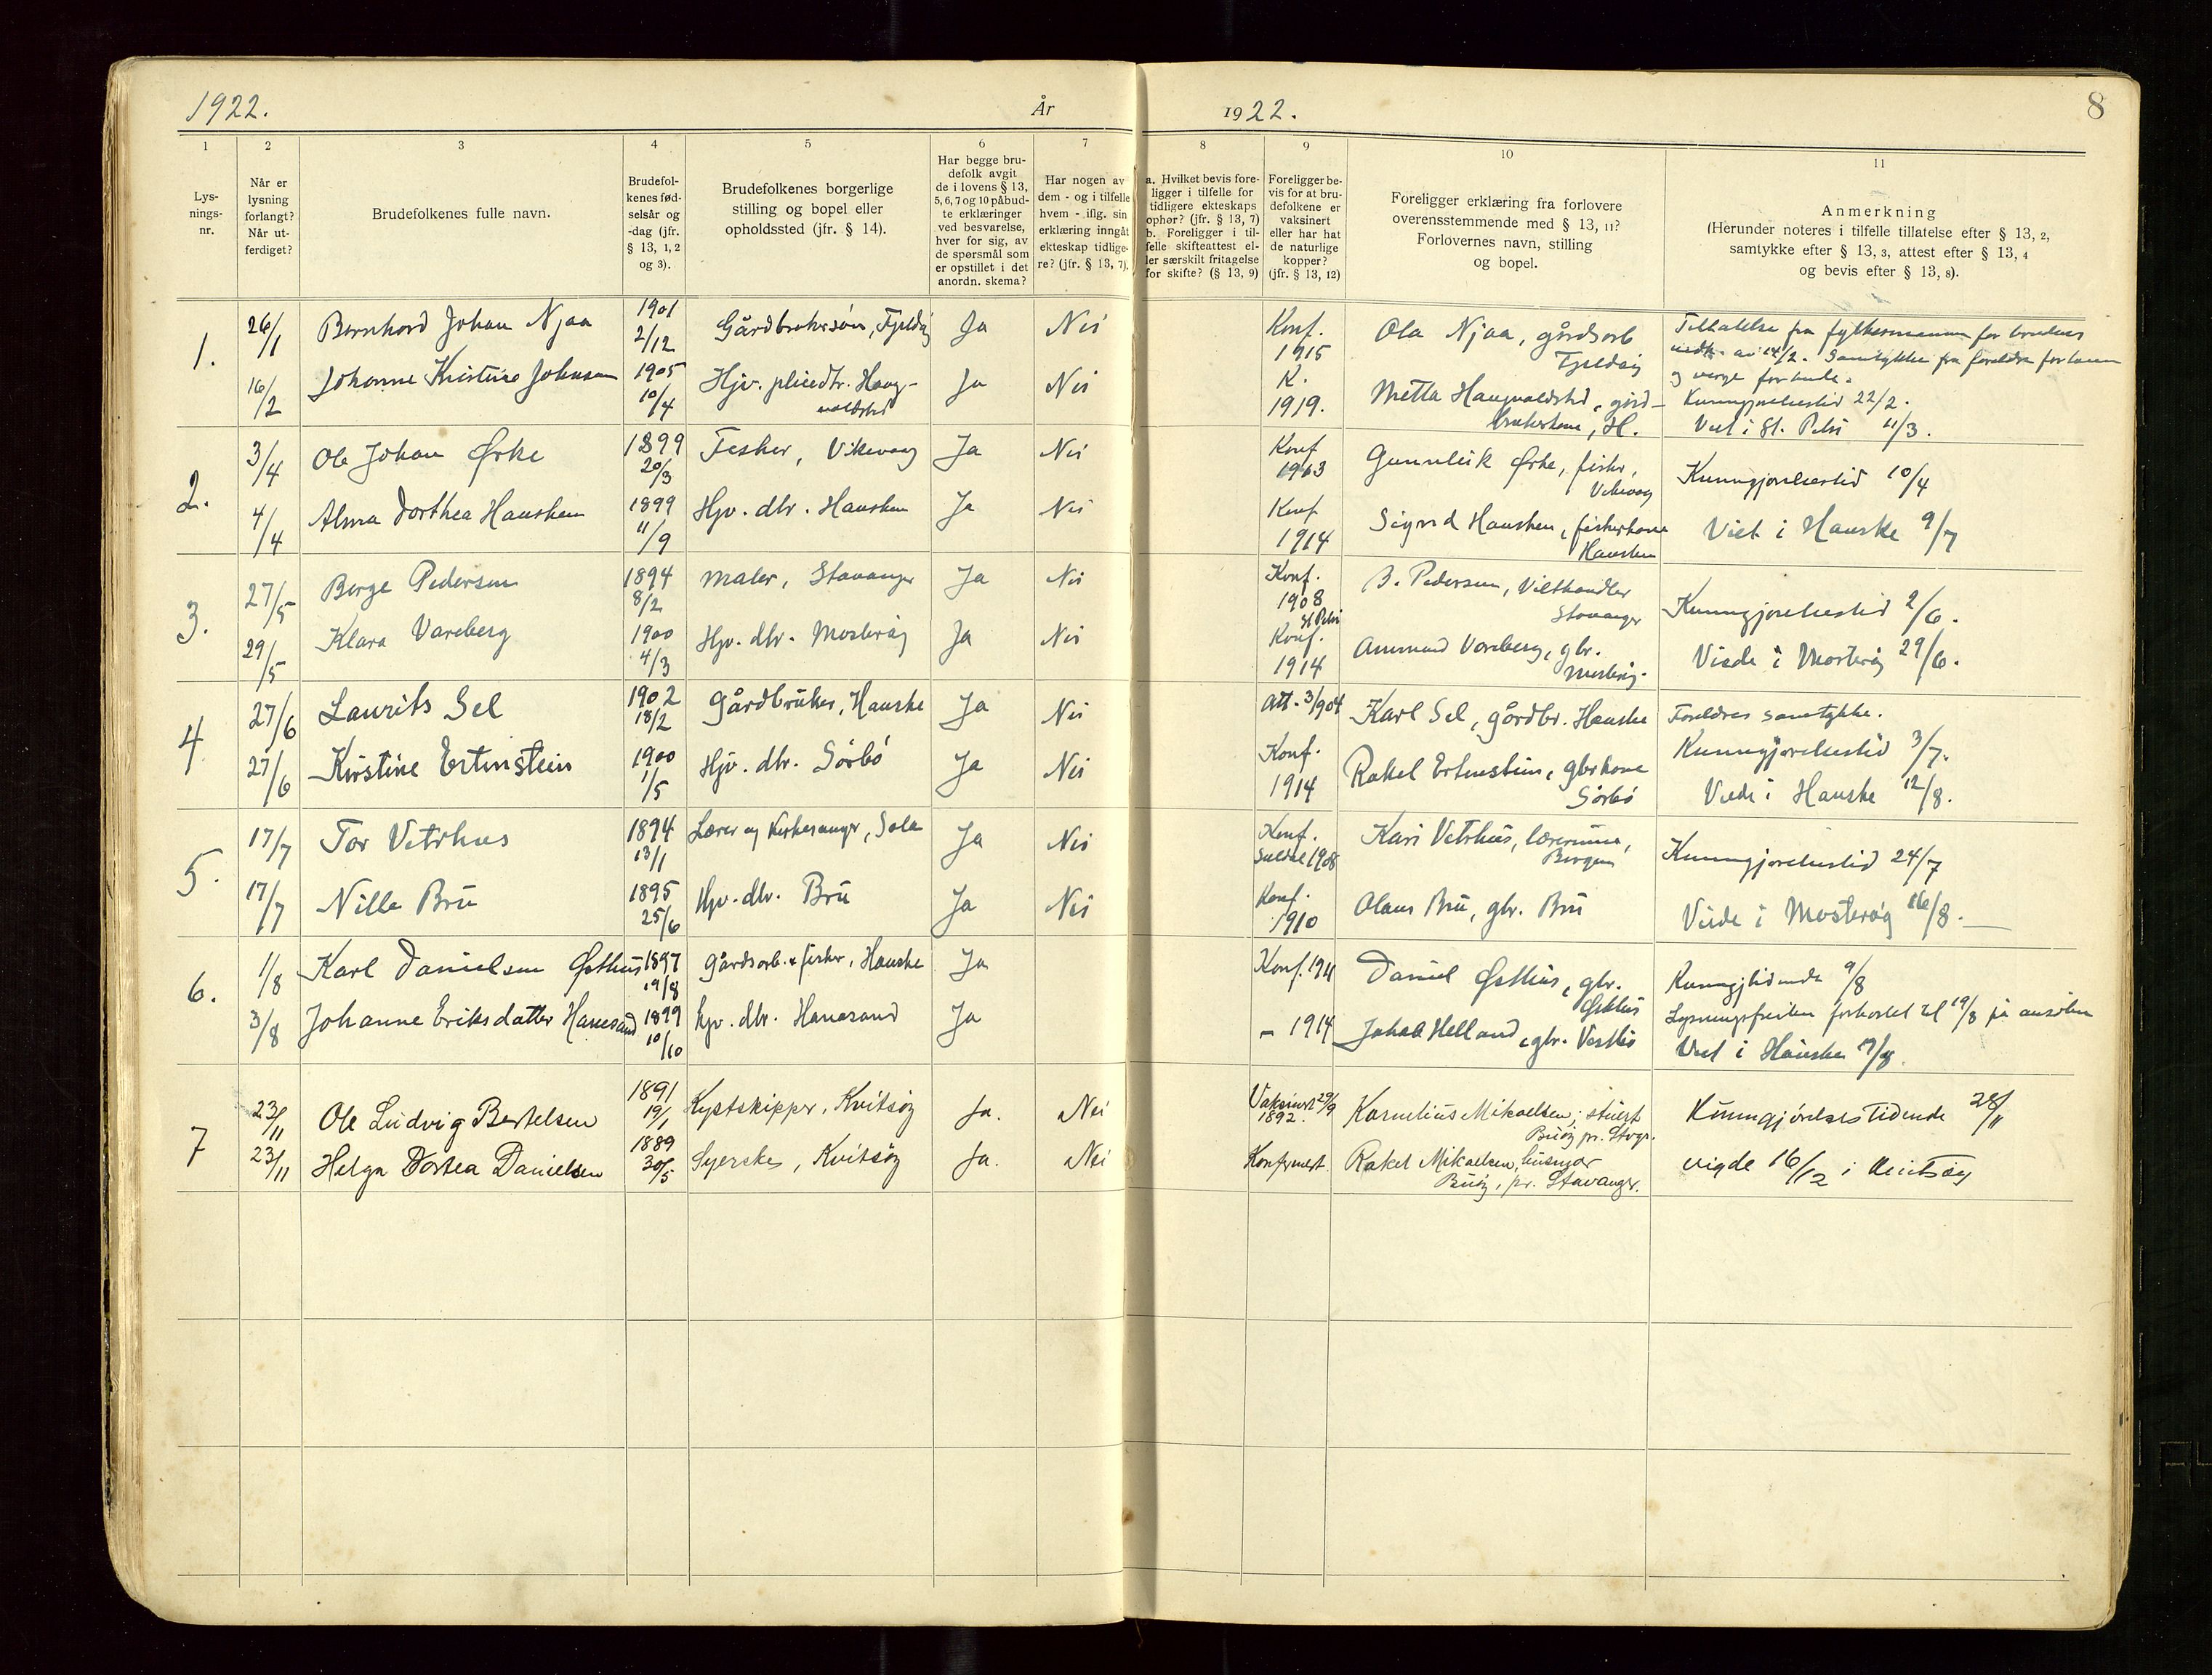 1922.
År
1922.
8
1
Lys-
nings-
nr.
2
Når er
lysning
forlangt?
Når ut-
ferdiget?
3
Brudefolkenes fulle navn.
4
Brudefol-
kenes fød-
selsår og
-dag (jfr.
§ 13, 1, 2
og 3).
5
Brudefolkenes borgerlige
stilling og bopel eller
opholdssted (jfr. § 14).
6
Har begge bru-
defolk avgit
de i lovens § 13,
5, 6, 7 og 10 påbud-
te erklæringer
ved besvarelse,
hver for sig, av
de spørsmål som
er opstillet i det
anordn. skema?
7
Har nogen av
dem - og i tilfelle
hvem - iflg. sin
erklæring inngåt
ekteskap tidlige-
re? (jfr. § 13, 7).
8
a. Hvilket bevis fore-
ligger i tilfelle for
tidligere ekteskaps
ophør? (jfr. § 13, 7)
b. Foreligger i til-
felle skifteattest el-
ler særskilt fritagelse
for skifte? (§ 13, 9)
9
Foreligger be-
vis for at bru-
defolkene er
vaksinert
eller har hat
de naturlige
kopper?
(jfr. § 13, 12)
10
Foreligger erklæring fra forlovere
overensstemmende med § 13, 11?
Forlovernes navn, stilling
og bopel.
11
Anmerkning
(Herunder noteres i tilfelle tillatelse efter § 13, 2,
samtykke efter § 13, 3, attest efter § 13, 4
og bevis efter § 13, 8).
1. 26/1 Bernhard Johan Njaa 1901 2/12 Gårdbrukersøn, Fjeldøy Ja Nei Konf. 1915 Ola Njaa, gårdsarb Fjeldøy
Tillatelse fra fylkesmannen for brudens
av 14/2. Samtykke fra foreldre for
og verge for brude.
16/2 Johanne Kristine Johnsen 1905 10/4 Hjv. pliedtr. Haug-
valdstad Ja Nei K. 1919. Metta Haugvaldstad, gård-
brukerkone, H.
Kunngjørelsestid 22/2.
Viet i St. Petri 11/3.
2. 3/4 Ole Johan Ørke 1899 20/3 Fisker, Vikevaag Ja Nei Konf 1913 Gunnleik Ørke, fisker,
Vikevaag
Kunngjørelsestid 10/4
4/4 Alma Dorthea Hausken 1899 11/9 Hjv. dtr. Hausken Ja Nei Konf 1914 Sigurd Hausken, fiskerkone
Hausken
Viet i Hauske 9/7
3. 27/5 Berge Pedersen 1894 8/2 Maler, Stavanger Ja Nei Konf. 1908 St Petri B. Pedersen, Vilthandler
Stavanger
Kunngjørelsestid 2/6.
29/5 Klara Vareberg 1900 4/3 Hjv. dtr. Mosterøy Ja Nei Konf. 1914 Ammund Vareberg, gbr.
Mosterøy.
Viede i Mosterøy 29/6.
4. 27/6 Laurits Sel 1902 18/2 Gårdbruker, Hauske Ja Nei Att. 3/9 04 Karl Sel, gårdbr. Hauske
Foreldres samtykke.
Kunngjørelsestid 3/7.
27/6 Kristine Ertenstein 1900 1/5 Hjv. dtr. Sørbø Ja Nei Konf. 1914 Rakel Ertenstein, gbrkone
Sørbø
Viede i Hauske 12/8.
5. 17/7 Tor Vetrhus 1894 13/1 Lærer og Kirkesanger, Sola Ja Nei Konf. Suldal 1908 Kari Vetrhus, lærerinne,
Bergen
Kunngjørelsestid 24/7
17/7 Nille Bru 1895 25/6 Hjv. dtr. Bru Ja Nei Konf. 1910 Olaus Bru, gbr. Bru
Viede i Mosterøy 16/8.
6. 1/8 Karl Danielsen Østhus 1897 19/8 Gårdsarb. & fisker, Hauske Ja Konf. 1911 Daniel Østhus, gbr.
Østhus
Kunngjtidende 9/8
Lysningsfristen forkortet til 19/8 på
3/8 Johanne Eriksdatter Hanesand 1899 10/10 hjv. dtr. Hanesand Ja - 1914 Jakob Helland, gbr. Vestbø
Viet i Hauske 19/8.
7 23/11 Ole Ludvig Bertelsen 1891 19/1 Kystskipper, Kvitsøy Ja. Nei Vaksinert 29/9 1892. Kornelius Mikaelsen, stuert
Buøy pr. Stvgr.
Kunngjørelsestidende 28/11
23/11 Helga Dortea Danielsen 1889 30/5 Syerske, Kvitsøy Ja. Nei Konfirmert. Rakel Mikaelsen, husmor
Buøy, pr. Stavanger.
vigde 16/12 i Kvitsøy